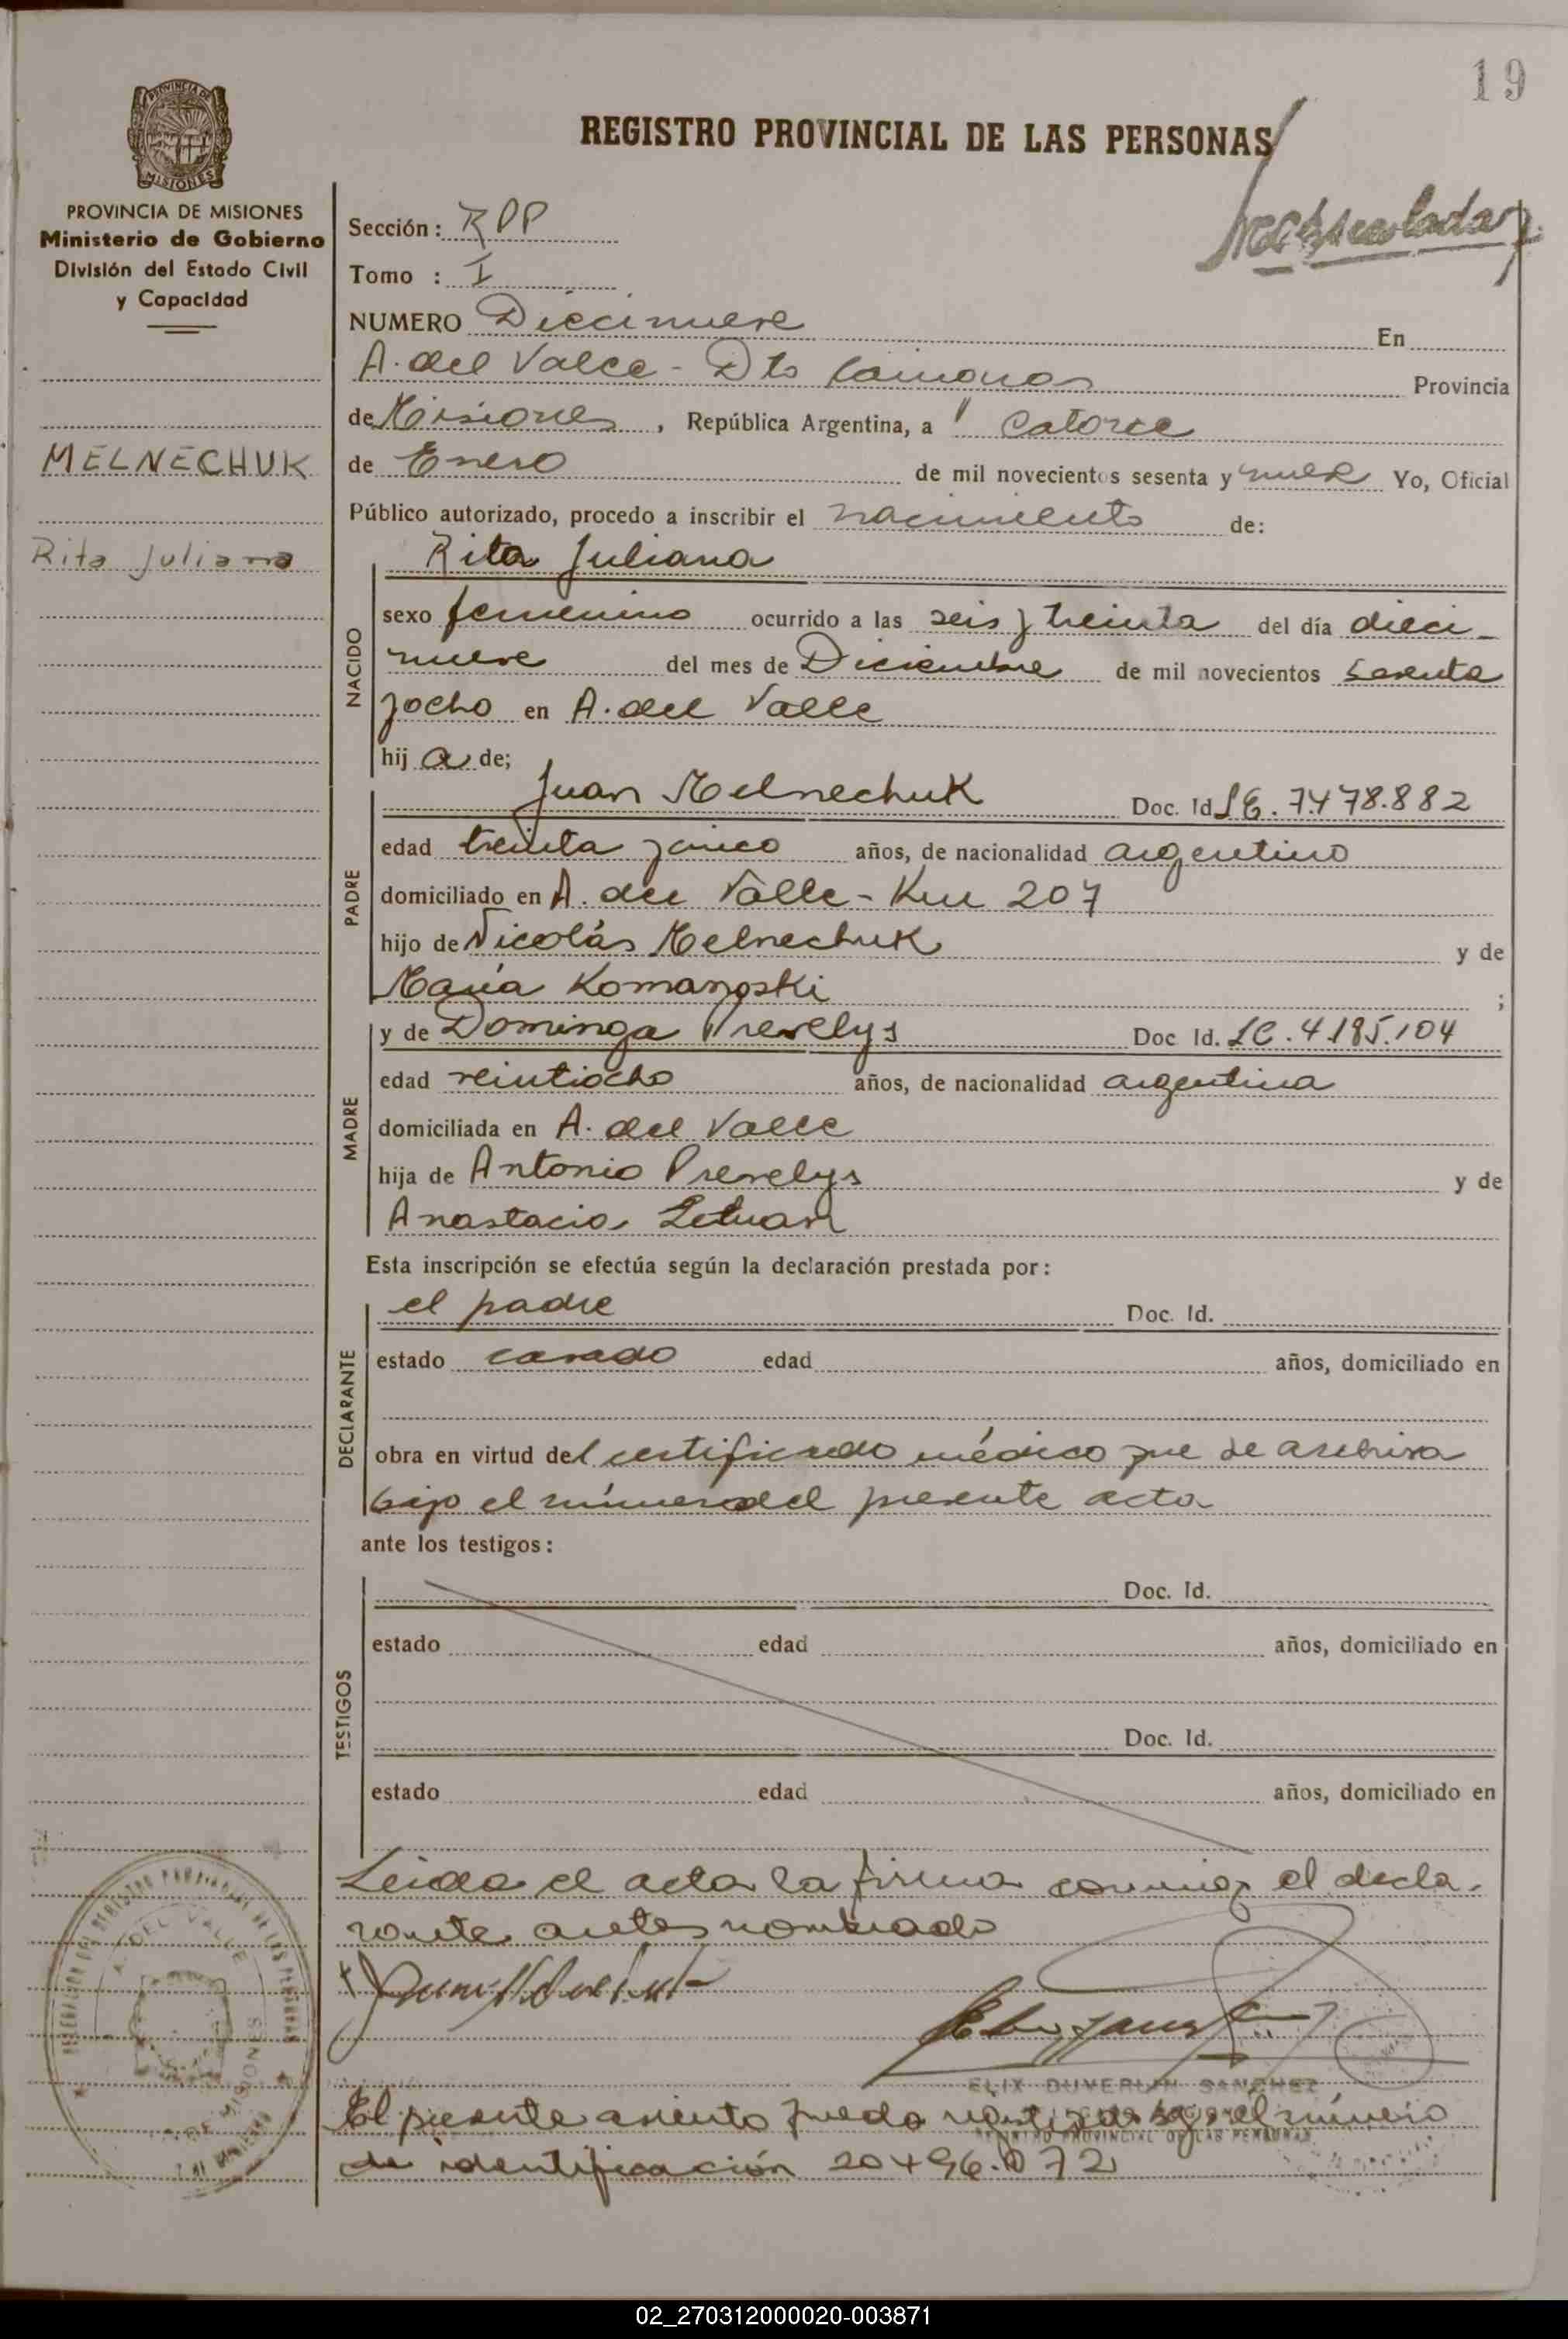 19
REGISTRO PROVINCIAL DE LAS PERSONAS
PROVINCIA DE
MISIONES
PROVINCIA DE MISIONES
Ministerio de Gobierno
División del Estado Civil
y Capacidad
MELNECHUK
Rita Juliana
Sección: RPP
Tomo : I
NUMERO Diecinueve En
A. del Valle - Dto Cainguas Provincia
de Misiones, República Argentina, a Catorce
de Enero de mil novecientos sesenta y nueve Yo, Oficial
Público autorizado, procedo a inscribir el nacimiento de:
NACIDO
Rita Juliana
sexo femenino ocurrido a las seis y treinta del día dieci-
nueve del mes de Diciembre de mil novecientos sesenta
y ocho en A. del Valle
hij a de;
PADRE
Juan Melnechuk Doc. Id L.E. 7.478.882
edad treinta y cinco años, de nacionalidad argentino
domiciliado en A. del Valle - Km 207
hijo de Nicolás Melnechuk y de
María ;
MADRE
y de Dominga Prevelys Doc Id. LC. 4.185.104
edad veintiocho años, de nacionalidad argentina
domiciliada en A. del Valle
hija de Antonio Prevelys y de
Anastacia
Esta inscripción se efectúa según la declaración prestada por:
DECLARANTE
el padre Doc. Id.
estado casado edad años, domiciliado en
obra en virtud del certificado médico que se archiva
bajo el número del presente acta
ante los testigos:
TESTIGOS
Doc. Id.
estado edad años, domiciliado en
Doc. Id.
estado edad años, domiciliado en
Leida el acta la firma conmigo el decla-
rante antes nombrado
A. DEL VALLE
MISIONES
ELIX DUVERLIN SANCHEZ
REGISTRO PROVINCIAL DE LAS PERSONAS
El presente asiento queda bajo el número
de identificación 20.496.072
02_270312000020-003871